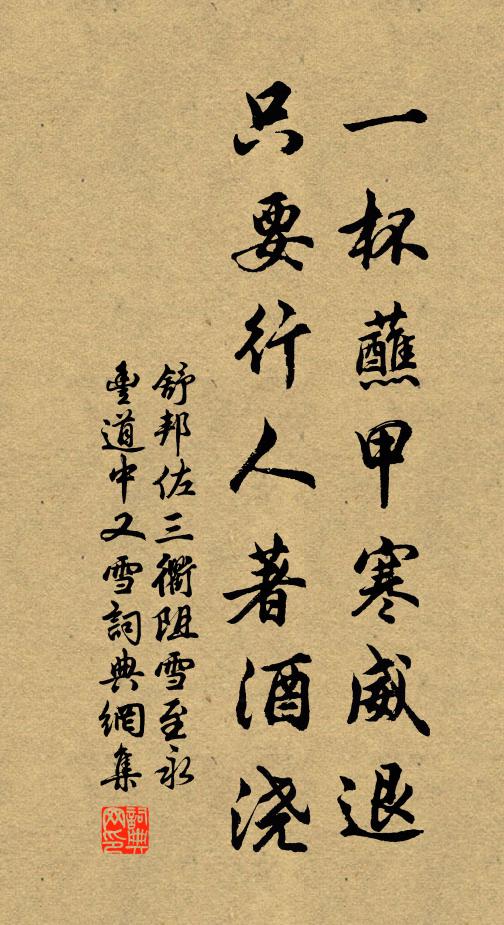 一杯蘸甲寒威退
只要行人著酒浇
舒邦佐三衢阻雪至永
豊道中又雪詞典網集
詞典
网印